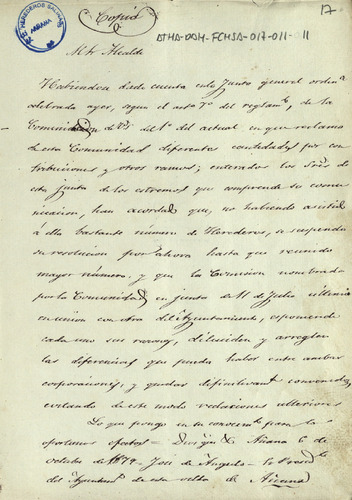 Copia
17
HEREDEROS SALINAS
AÑANA
ATHA-DAH-FCMSA-017-011-11
Sr. Alcalde
Habiendose dado cuenta en la Junta general ordinª
celebrada ayer, segun el arto 7º del reglamto, de la
Comunicacion de VS. del 1º del actual en que reclama
de esta Comunidad diferentes cantidades por con
tribuciones y otros ramos; enterados los Sres de
esta Junta de los estremos que comprende su comu
nicacion, han acordado que, no habiendo asistido
á ella bastante número de Herederos, se suspenda
su resolucion por ahora hasta que reunido
mayor número, y que la Comision nombrada
por la Comunidad en junta de 11 de Julio ulterior
en union con otra del Ayuntamiento, esponiendo
cada uno sus razones, diluciden y arreglen
las diferencias que pueda haber entre ambas
corporaciones, y quedar definitivamte convenidos
evitando de este modo reclamaciones ulteriores
Lo que pongo en su conocimto para los
oportunos efectos = Dios gue Añana 6 de
octubre de 1874 = José de Angulo = Sr Presidte
del Ayuntamto de esta villa de Añana